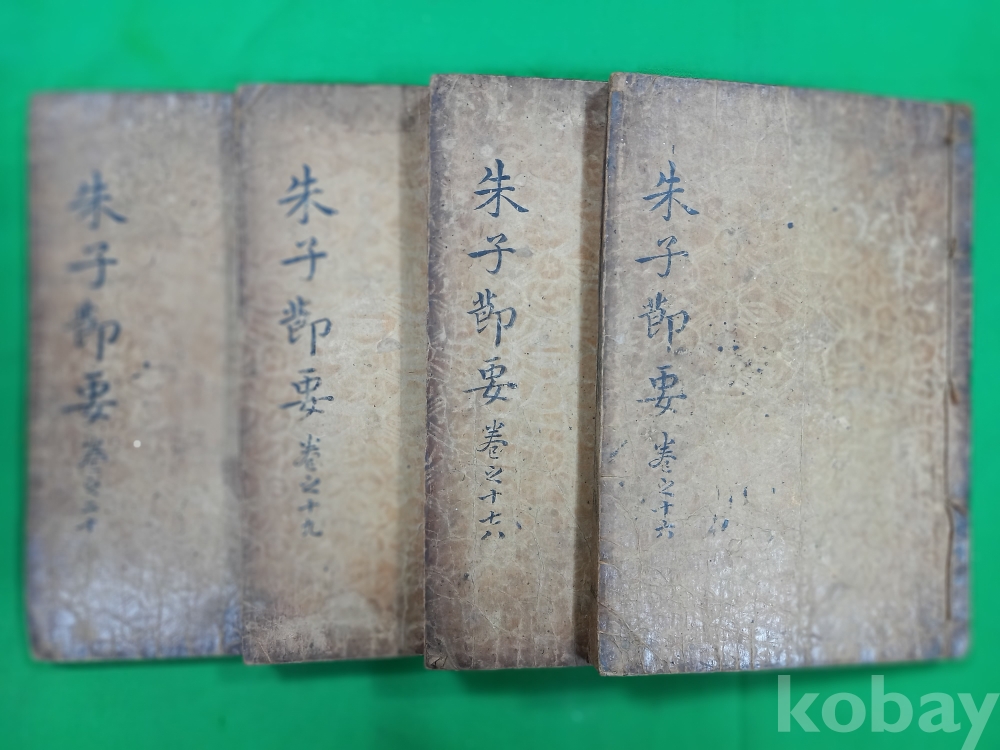 朱子節要 卷之十六
朱子節要 卷之十七八
朱子節要 卷之十九
朱子節要 卷之二十
kobay